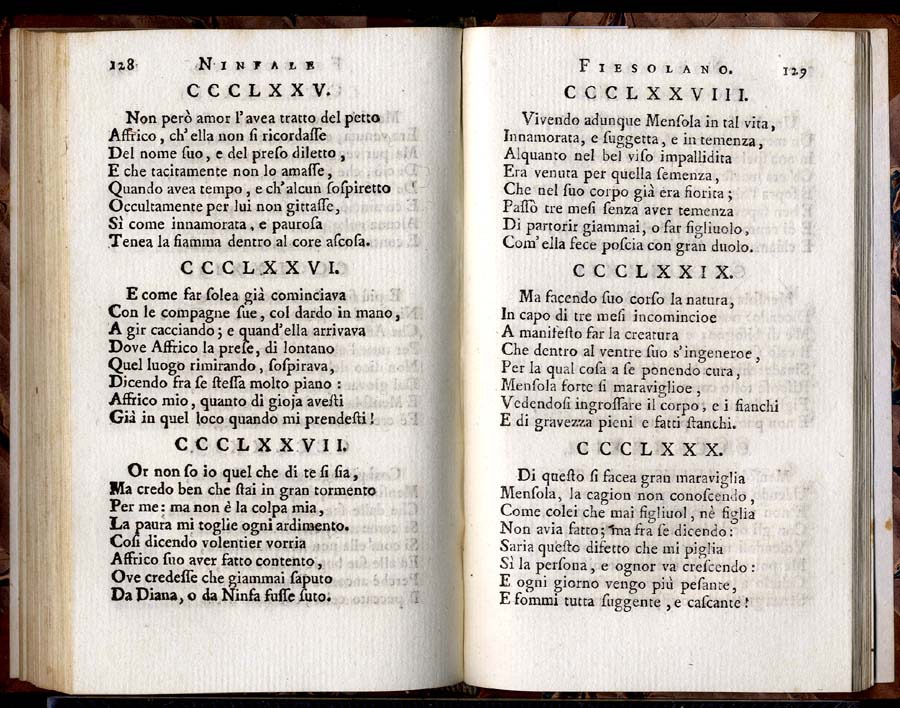 128 NINFALE
CCCLXXV.
Non però amor l'avea tratto del petto
Affrico, ch'ella non ſi ricordaſſe
Del nome ſuo, e del preſo diletto,
E che tacitamente non lo amaſſe,
Quando avea tempo, e ch'alcun ſoſpiretto
Occultamente per lui non gittaſſe,
Sì come innamorata, e pauroſa
Tenea la fiamma dentro al core aſcoſa.
CCCLXXVI.
E come far ſolea già cominciava
Con le compagne ſue, col dardo in mano,
A gir cacciando; e quand'ella arrivava
Dove Affrico la preſe, di lontano
Quel luogo rimirando, ſoſpirava,
Dicendo fra ſe ſteſſa molto piano:
Affrico mio, quanto di gioja aveſti
Già in quel loco quando mi prendeſti!
CCCLXXVII.
Or non ſo io quel che di te ſi ſia,
Ma credo ben che ſtai in gran tormento
Per me: ma non è la colpa mia,
La paura mi toglie ogni ardimento.
Coſi dicendo volentier vorria
Affrico ſuo aver fatto contento,
Ove credeſſe che giammai ſaputo
Da Diana, o da Ninfa fuſſe ſuto.
FIESOLANO. 129
CCCLXXVIII.
Vivendo adunque Menſola in tal vita,
Innamorata, e ſuggetta, e in temenza,
Alquanto nel bel viſo impallidita
Era venuta per quella ſemenza,
Che nel ſuo corpo già era fiorita;
Paſſò tre meſi ſenza aver temenza
Di partorir giammai, o far figliuolo,
Com'ella fece poſcia con gran duolo.
CCCLXXIX.
Ma facendo ſuo corſo la natura,
In capo di tre meſi incomincioe
A manifeſto far la creatura
Che dentro al ventre ſuo s'ingeneroe,
Per la qual coſa a ſe ponendo cura,
Menſola forte ſi maraviglioe,
Vedendoſi ingroſſare il corpo, e i fianchi
E di gravezza pieni e fatti ſtanchi.
CCCLXXX.
Di queſto ſi facea gran maraviglia
Menſola, la cagion non conoſcendo,
Come colei che mai figliuol, nè figlia
Non avia fatto; ma fra ſe dicendo:
Saria queſto difetto che mi piglia
Sì la perſona, e ognor va creſcendo:
E ogni giorno vengo più peſante,
E ſommi tutta ſuggente, e caſcante!